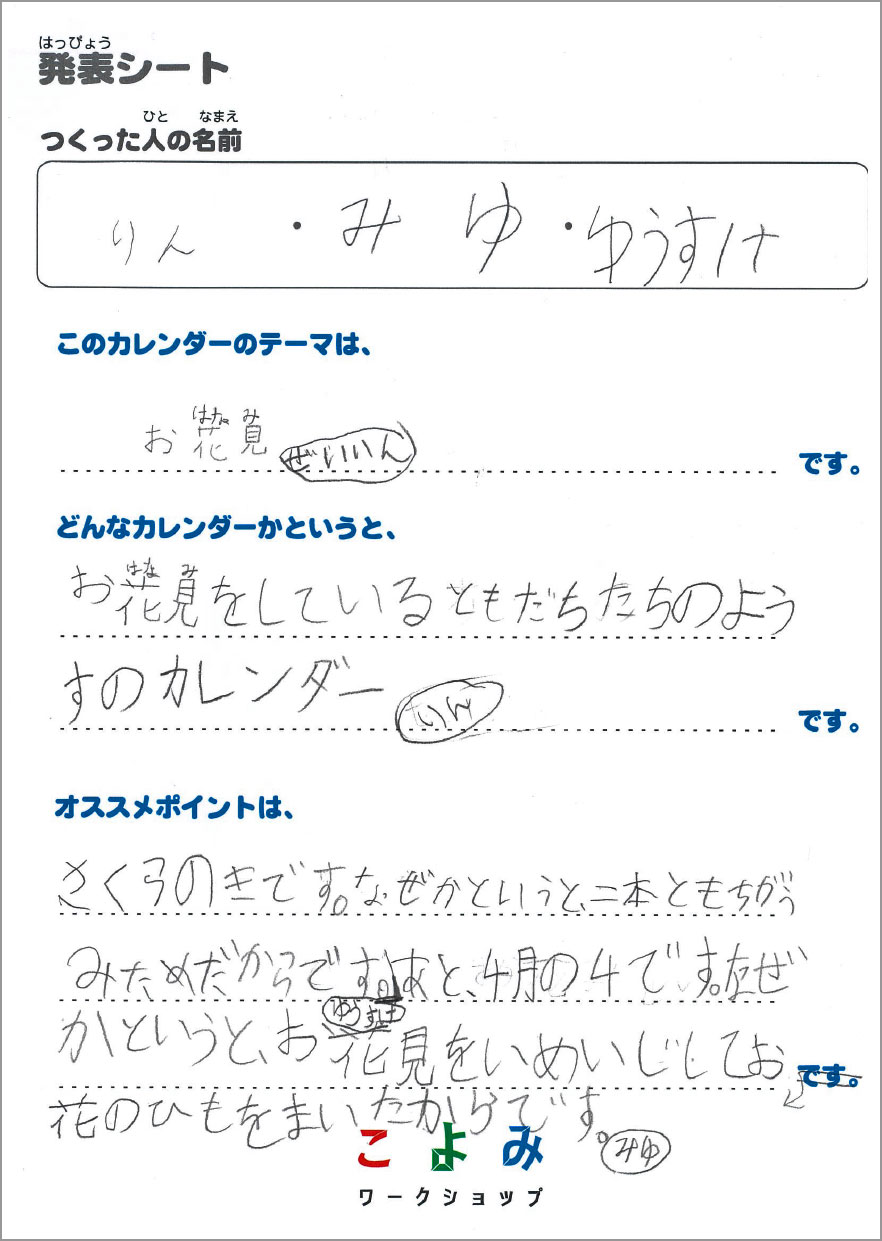 はっぴょう
発表シート
ひと なまえ
つくった人の名前
りん ・ みゆ ・ ゆうすけ
このカレンダーのテーマは、
はな み
お花見 ぜいいん です。
どんなカレンダーかというと、
はな み
お花見をしているともだちたちのよう
すのカレンダー りん です。
オススメポイントは、
さくらのきです。なぜかというと、二本ともちがう
みためだからです。あと、4月の4です。なぜ
ゆうすけ
かというと、お花見をいめいじしてお です。
花のひもをまいたからです。 みゆ
こよみ
ワークショップ